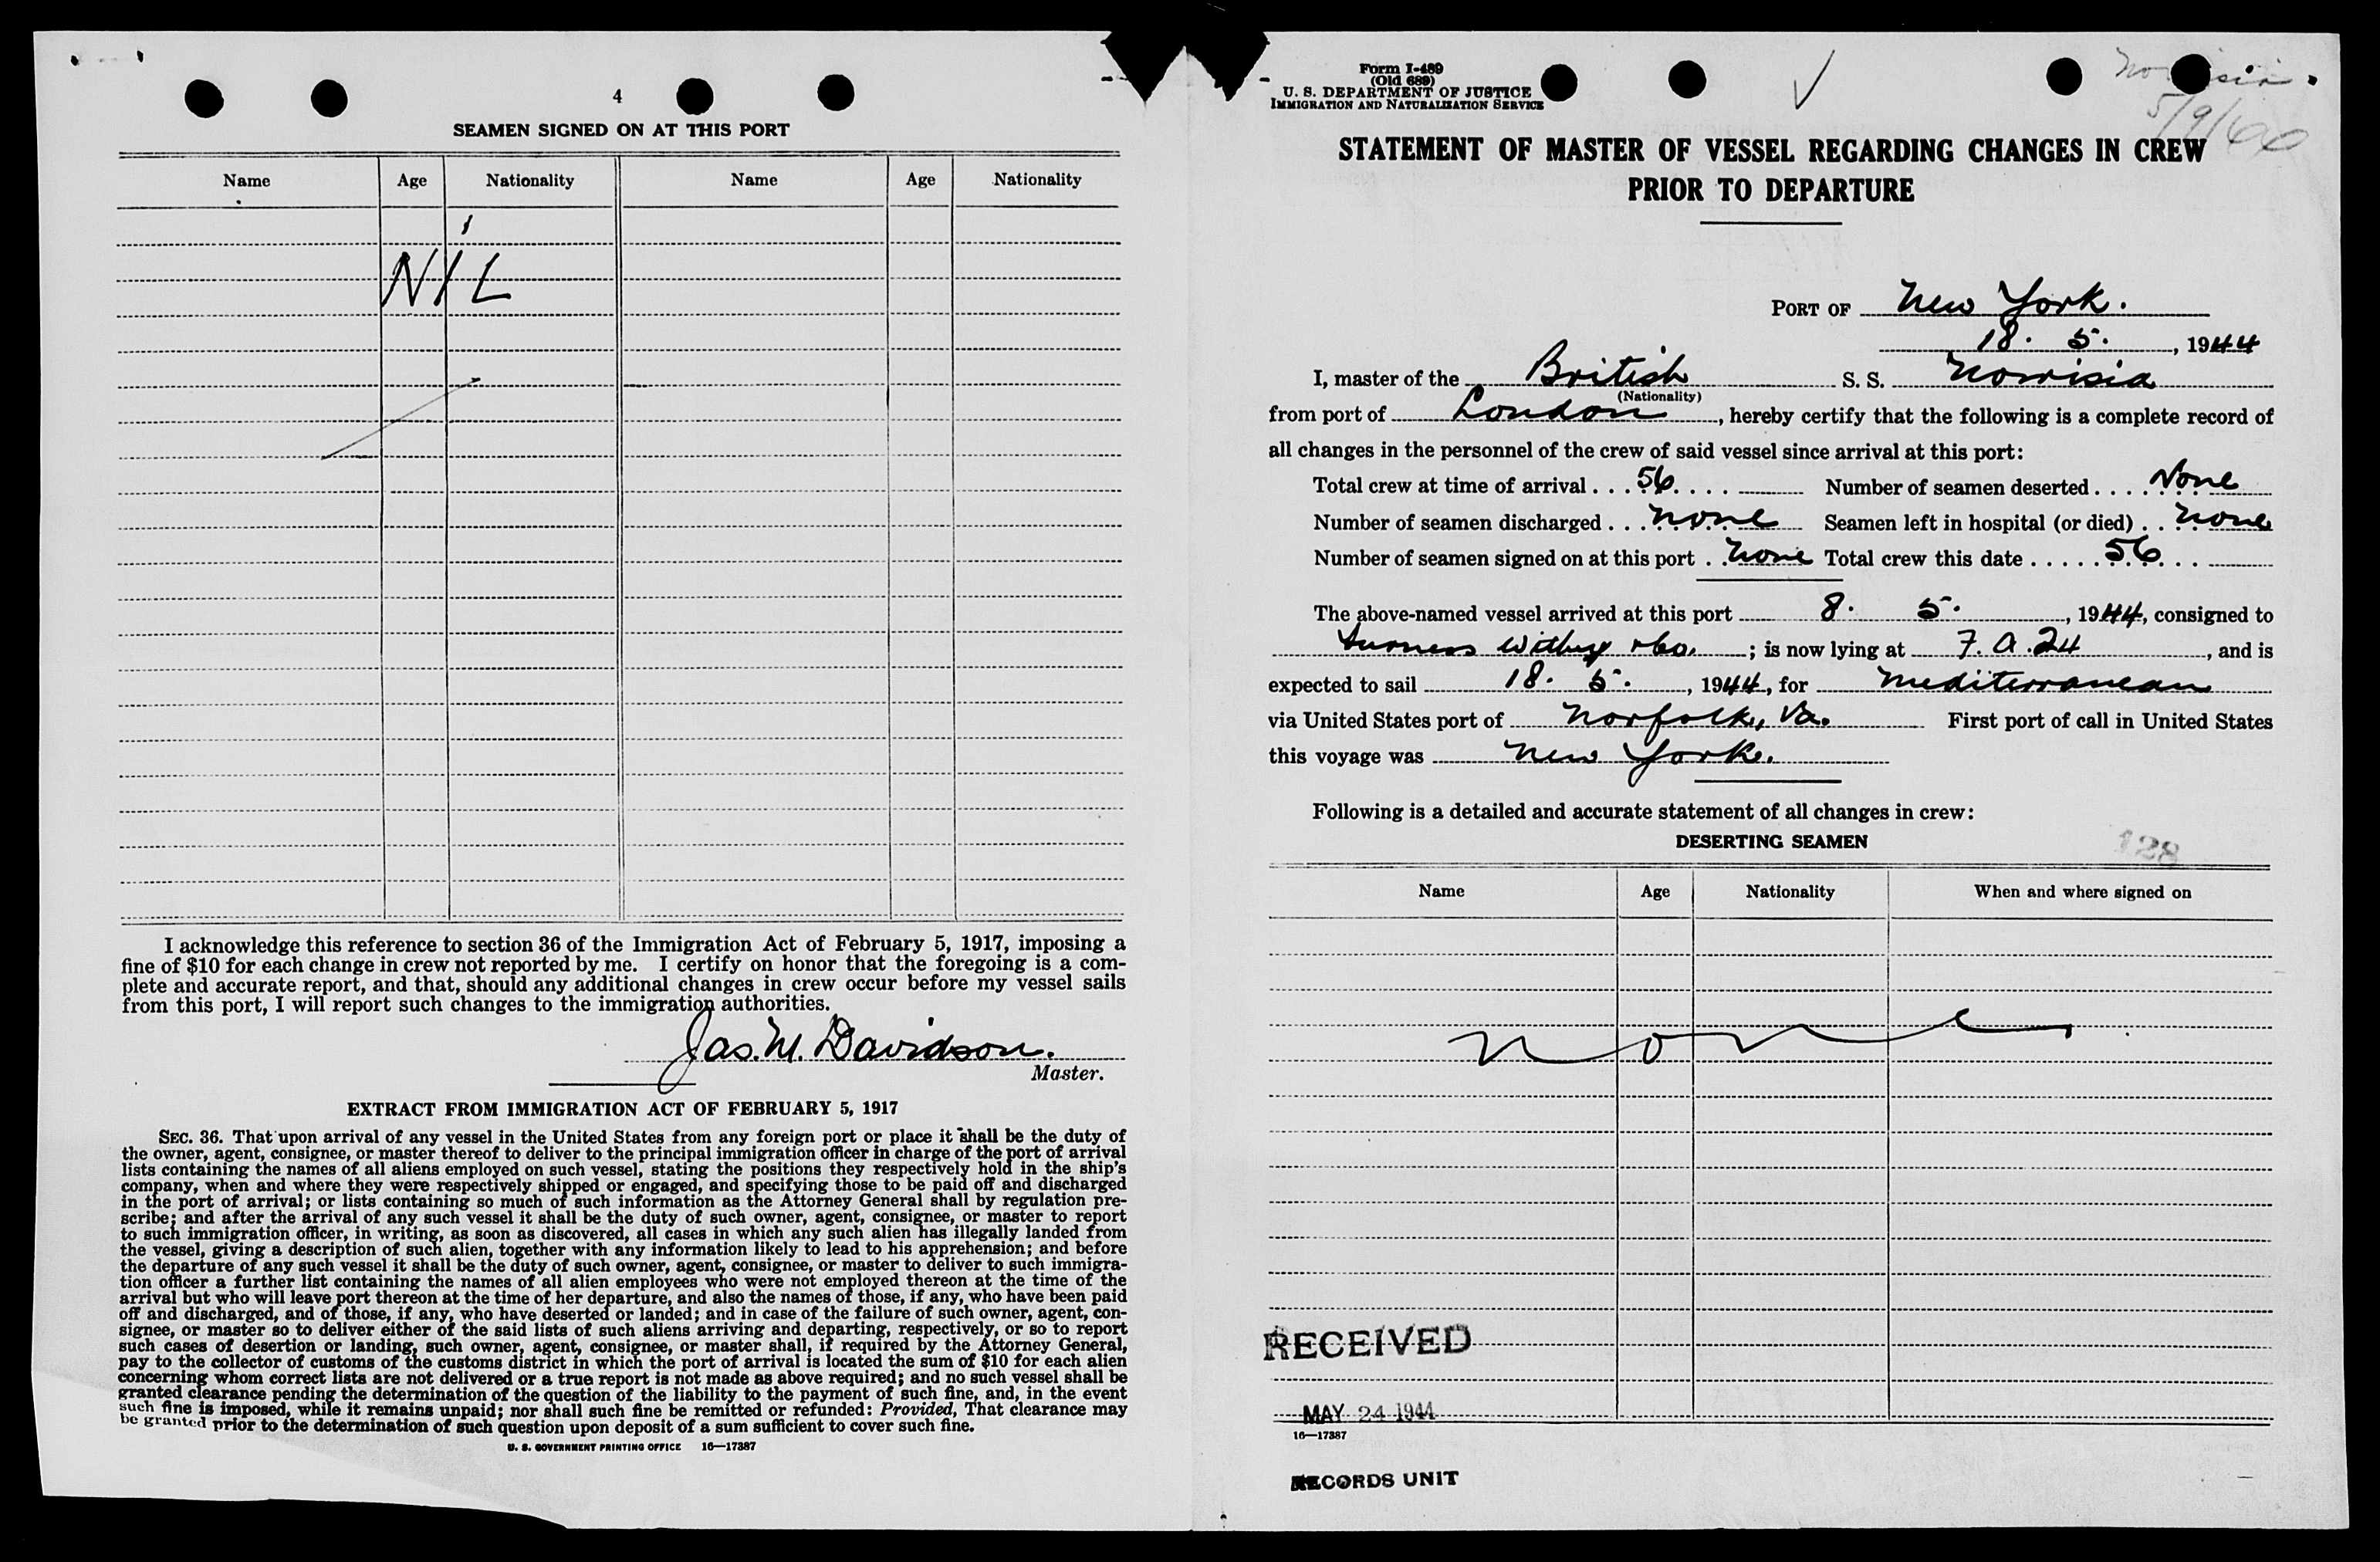 4
SEAMEN SIGNED ON AT THIS PORT
Name Age Nationality Name Age Nationality
NIL
I acknowledge this reference to section 36 of the Immigration Act of February 5, 1917, imposing a
fine of $10 for each change in crew not reported by me. I certify on honor that the foregoing is a com-
plete and accurate report, and that, should any additional changes in crew occur before my vessel sails
from this port, I will report such changes to the immigration authorities.
Jas. M. Davidson.
Master.
EXTRACT FROM IMMIGRATION ACT OF FEBRUARY 5, 1917
SEC. 36. That upon arrival of any vessel in the United States from any foreign port or place it shall be the duty of
the owner, agent, consignee, or master thereof to deliver to the principal immigration officer in charge of the port of arrival
lists containing the names of all aliens employed on such vessel, stating the positions they respectively hold in the ship's
company, when and where they were respectively shipped or engaged, and specifying those to be paid off and discharged
in the port of arrival; or lists containing so much of such information as the Attorney General shall by regulation pre-
scribe; and after the arrival of any such vessel it shall be the duty of such owner, agent, consignee, or master to report
to such immigration officer, in writing, as soon as discovered, all cases in which any such alien has illegally landed from
the vessel, giving a description of such alien, together with any information likely to lead to his apprehension; and before
the departure of any such vessel it shall be the duty of such owner, agent, consignee, or master to deliver to such immigra-
tion officer a further list containing the names of all alien employees who were not employed thereon at the time of the
arrival but who will leave port thereon at the time of her departure, and also the names of those, if any, who have been paid
off and discharged, and of those, if any, who have deserted or landed; and in case of the failure of such owner, agent, con-
signee, or master so to deliver either of the said lists of such aliens arriving and departing, respectively, or so to report
such cases of desertion or landing, such owner, agent, consignee, or master shall, if required by the Attorney General,
pay to the collector of customs of the customs district in which the port of arrival is located the sum of $10 for each alien
concerning whom correct lists are not delivered or a true report is not made as above required; and no such vessel shall be
granted clearance pending the determination of the question of the liability to the payment of such fine, and, in the event
such fine is imposed, while it remains unpaid; nor shall such fine be remitted or refunded: Provided, That clearance may
be granted prior to the determination of such question upon deposit of a sum sufficient to cover such fine.
U. S. GOVERNMENT PRINTING OFFICE 16—17387
Form I-489
(Old 689)
U. S. DEPARTMENT OF JUSTICE
IMMIGRATION AND NATURALIZATION SERVICE
STATEMENT OF MASTER OF VESSEL REGARDING CHANGES IN CREW
PRIOR TO DEPARTURE
PORT OF New York.
18. 5. , 1944
I, master of the British S. S. Norrisia
(Nationality)
from port of London , hereby certify that the following is a complete record of
all changes in the personnel of the crew of said vessel since arrival at this port:
Total crew at time of arrival . . . 56 . . . . Number of seamen deserted . . . . None
Number of seamen discharged . . . none Seamen left in hospital (or died) . . none
Number of seamen signed on at this port . . none Total crew this date . . . . . 56 . . .
The above-named vessel arrived at this port 8. 5. , 1944, consigned to
Furness Withy & Co. ; is now lying at F. A. 24 , and is
expected to sail 18. 5. , 1944, for Mediterranean
via United States port of Norfolk, Va. First port of call in United States
this voyage was New York.
Following is a detailed and accurate statement of all changes in crew:
DESERTING SEAMEN
128
Name Age Nationality When and where signed on
none
RECEIVED
MAY 24 1944
16—17387
RECORDS UNIT